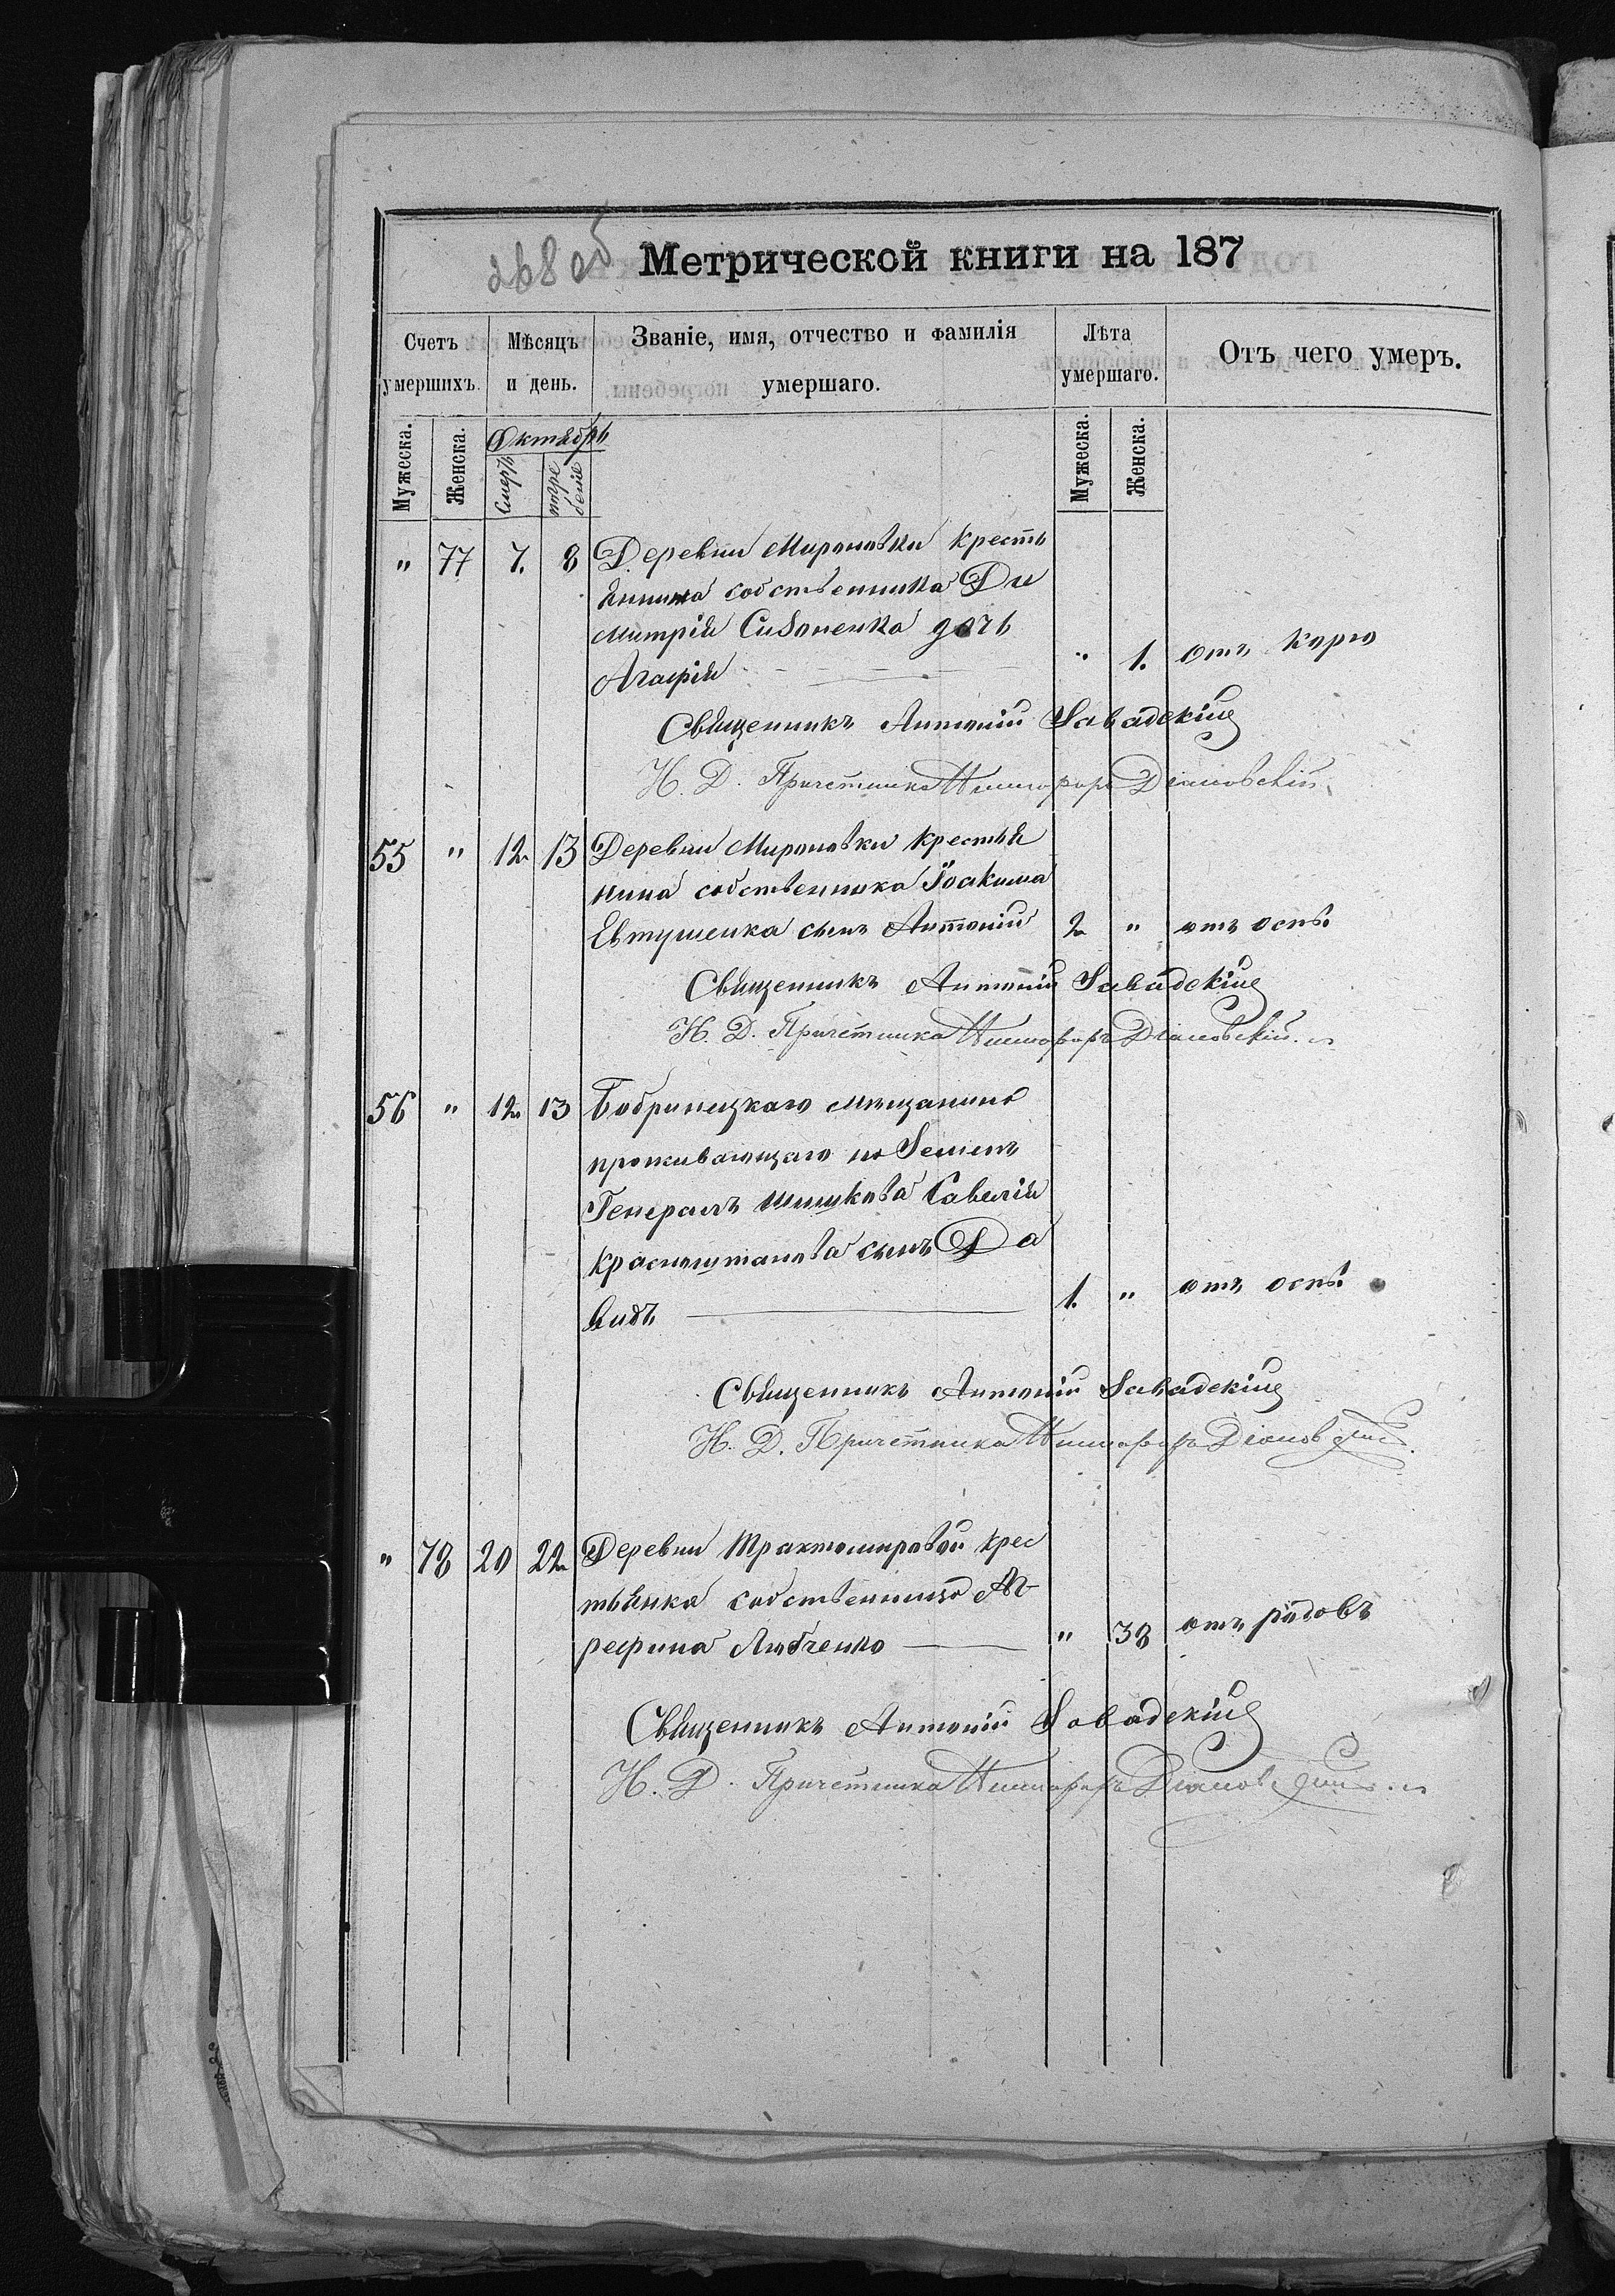 268 об
Метрической книги на 187
Счетъ умершихъ.
Мѣсяцъ и день.
Званіе, имя, отчество и фамилія умершаго.
Лѣта умершаго.
Отъ чего умеръ.
Мужеска.
Женска.
Октябрь
Смерть
погре
бенія
Мужеска.
Женска.
" 77 7. 8 Деревни Мироновки кресть
янина собственника Ди
митрія Сидоненка дочь
Агафія " 1. отъ кору
Священникъ Антоній Савадскій
И. Д. Причетника Никифоръ Діановскій
55 " 12 13 Деревни Мироновки крестья
нина собственника Іоакима
Евтушенка сынъ Антоній 2 " отъ оспы
Священникъ Антоній Савадскій
И. Д. Причетника Никифоръ Діановскій
56 " 12 13 Бобринецкаго мѣщанина
проживающаго на Земли
Генералъ Шишкова Савелія
Красноштанова сынъ Да
видъ 1. " отъ оспы
Священникъ Антоній Савадскій
И. Д. Причетника Никифоръ Діановскій
" 78 20 22 Деревни Трактомировой крес
тьянка собственница Аг
рефина Любченко " 38 отъ родовъ
Священникъ Антоній Савадскій
И. Д. Причетника Никифоръ Діановскій